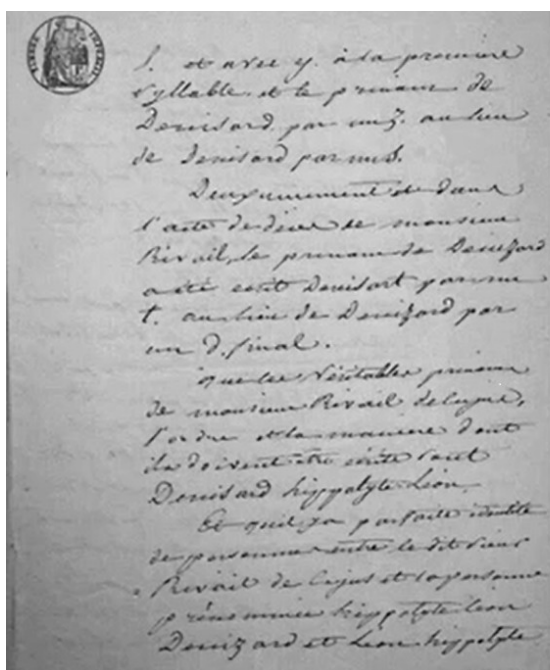 TIMBRE IMPERIAL
S. et avec y. à la première
syllable. et le prénom de
Denisard. par un z. au lieu
de Denisard par un s.
Deuxièmement et dans
l'acte de décès de monsieur
Rivail, le prénom de Denizard
a été écrit Denisart par un
t. au lieu de Denizard par
un d. final.
que les véritables prénoms
de monsieur Rivail de cujus,
l'ordre et la manière dont
ils doivent être écrits sont
Denisard hippolyte Léon
Et qu'il y a parfaite identité
de personnes entre le dit sieur
Rivail de cujus et la personne
prénommée hippolyte Léon
Denizard et Léon hippolyte